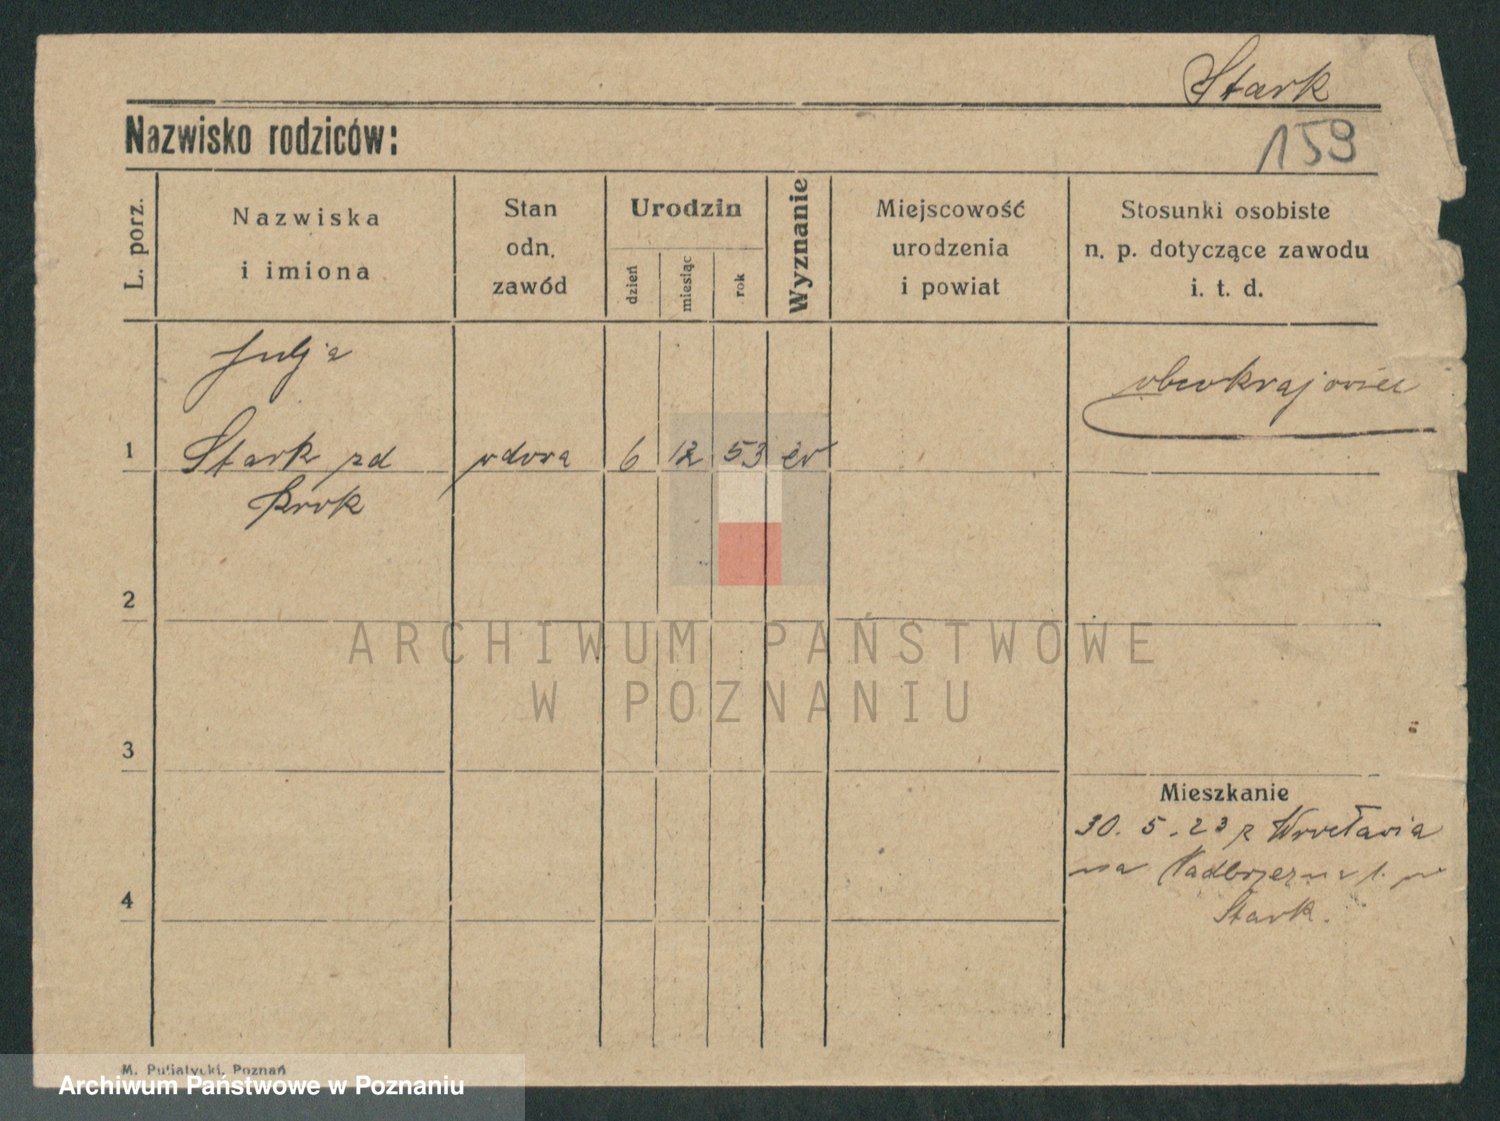 Stark
Nazwisko rodziców:
159
L. porz.
Nazwiska
i imiona
Stan
odn.
zawód
Urodzin
dzień
miesiąc
rok
Wyznanie
Miejscowość
urodzenia
i powiat
Stosunki osobiste
n. p. dotyczące zawodu
i. t. d.
Julja
obcokrajowiec
1 Stark zd wdowa 6 12 53 ev
Krok
2
ARCHIWUM PAŃSTWOWE
W POZNANIU
3
Mieszkanie
30. 5. 23 z Wrocławia
na Nadbrzeżna 1.
Stark.
4
M. Putiatycki, Poznań
Archiwum Państwowe w Poznaniu